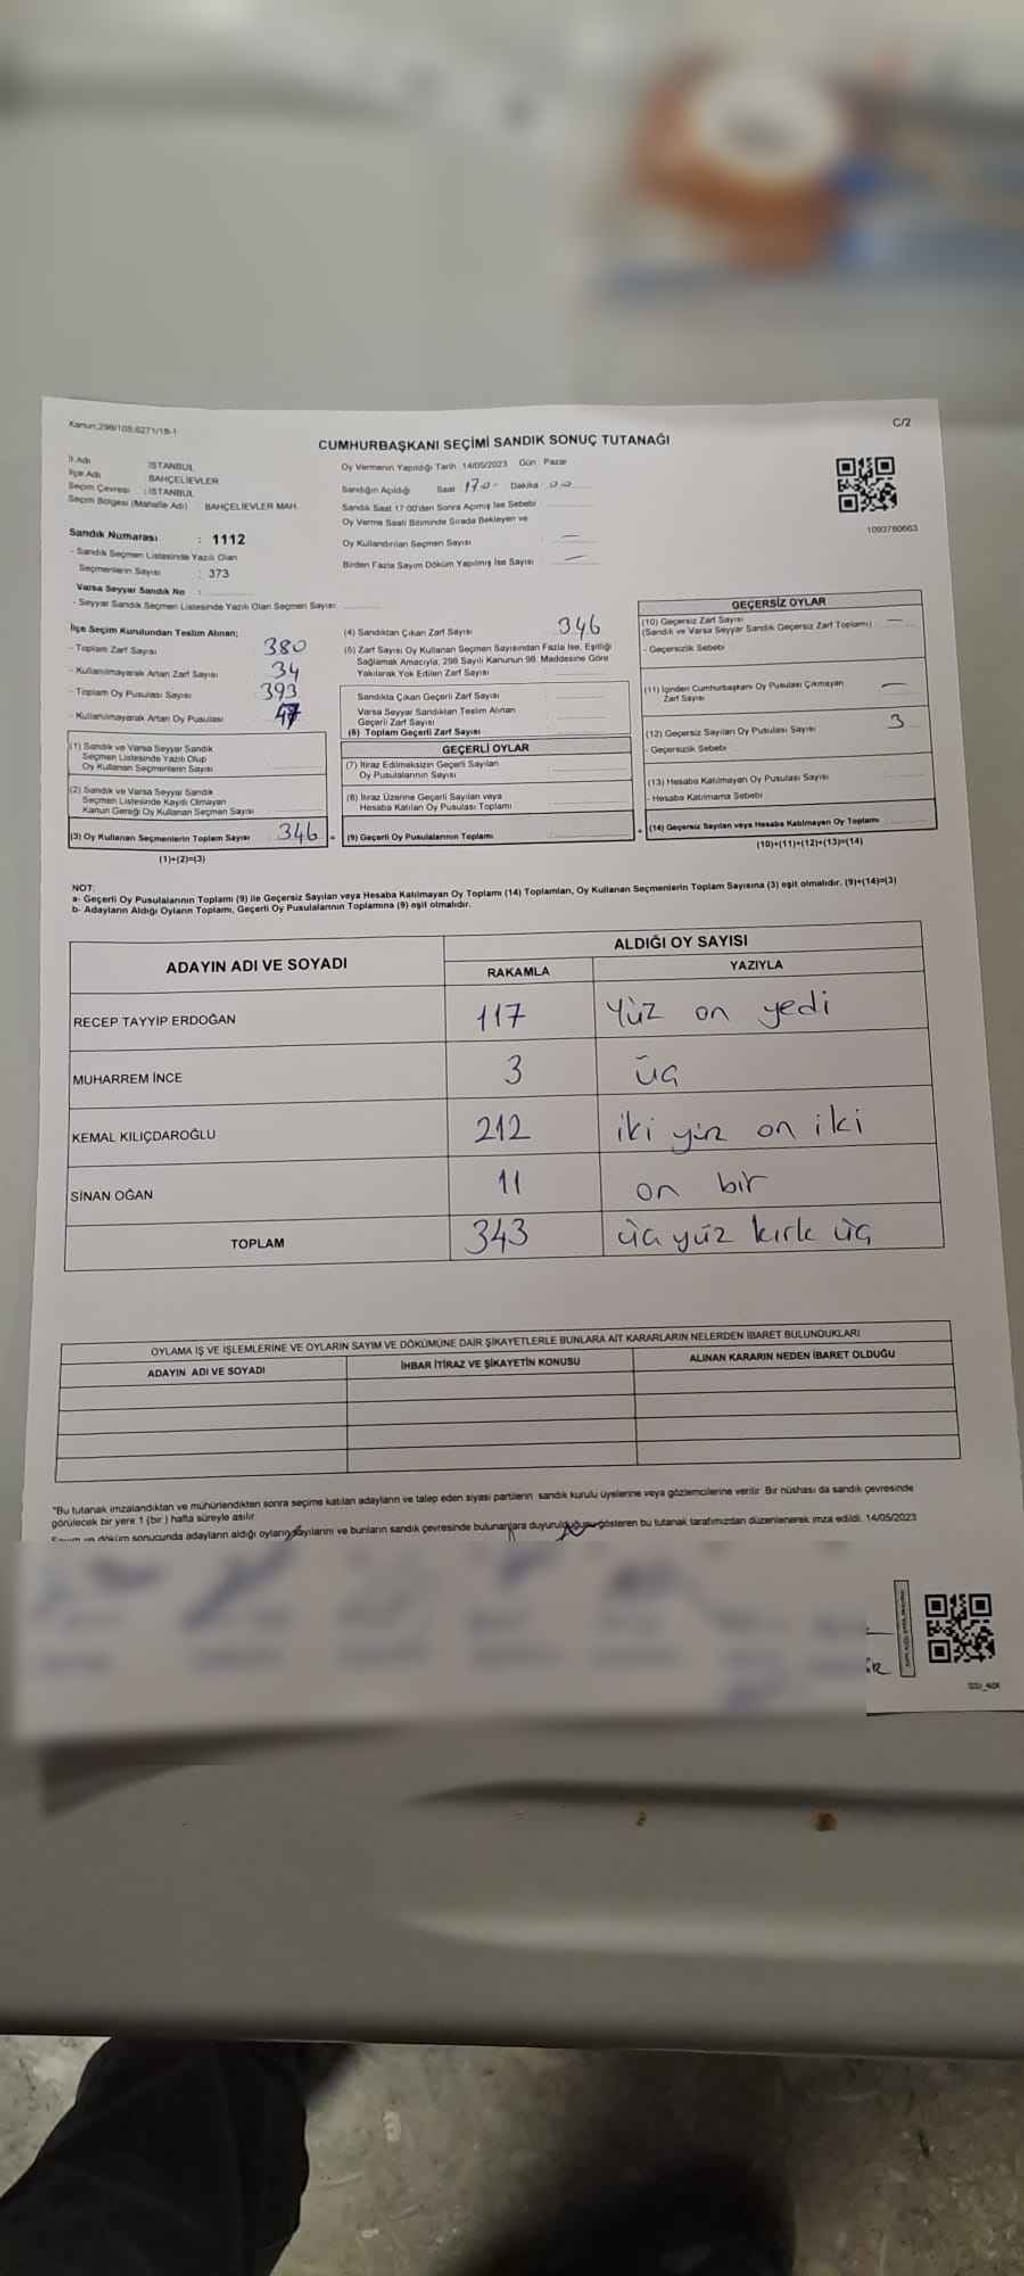 Kanun:298/105,6271/18-1
C/2
CUMHURBAŞKANI SEÇİMİ SANDIK SONUÇ TUTANAĞI
İl Adı : İSTANBUL
İlçe Adı : BAHÇELİEVLER
Seçim Çevresi : İSTANBUL
Seçim Bölgesi (Mahalle Adı) BAHÇELİEVLER MAH.
Sandık Numarası : 1112
- Sandık Seçmen Listesinde Yazılı Olan
Seçmenlerin Sayısı : 373
Varsa Seyyar Sandık No :
- Seyyar Sandık Seçmen Listesinde Yazılı Olan Seçmen Sayısı
Oy Vermenin Yapıldığı Tarih 14/05/2023 Gün : Pazar
Sandığın Açıldığı Saat 17:0 Dakika 00
Sandık Saat 17:00'den Sonra Açılmış İse Sebebi
Oy Verme Saati Bitiminde Sırada Bekleyen ve
Oy Kullandırılan Seçmen Sayısı : —
Birden Fazla Sayım Döküm Yapılmış İse Sayısı : —
1093780663
İlçe Seçim Kurulundan Teslim Alınan;
- Toplam Zarf Sayısı 380
- Kullanılmayarak Artan Zarf Sayısı 34
- Toplam Oy Pusulası Sayısı 393
- Kullanılmayarak Artan Oy Pusulası 47
(1) Sandık ve Varsa Seyyar Sandık
Seçmen Listesinde Yazılı Olup
Oy Kullanan Seçmenlerin Sayısı
(2) Sandık ve Varsa Seyyar Sandık
Seçmen Listesinde Kaydı Olmayan
Kanun Gereği Oy Kullanan Seçmen Sayısı
(3) Oy Kullanan Seçmenlerin Toplam Sayısı 346
(1)+(2)=(3)
(4) Sandıktan Çıkan Zarf Sayısı 346
(5) Zarf Sayısı Oy Kullanan Seçmen Sayısından Fazla İse, Eşitliği
Sağlamak Amacıyla, 298 Sayılı Kanunun 98. Maddesine Göre
Yakılarak Yok Edilen Zarf Sayısı
Sandıkta Çıkan Geçerli Zarf Sayısı
Varsa Seyyar Sandıktan Teslim Alınan
Geçerli Zarf Sayısı
(6) Toplam Geçerli Zarf Sayısı
GEÇERLİ OYLAR
(7) İtiraz Edilmeksizin Geçerli Sayılan
Oy Pusulalarının Sayısı
(8) İtiraz Üzerine Geçerli Sayılan veya
Hesaba Katılan Oy Pusulası Toplamı
= (9) Geçerli Oy Pusulalarının Toplamı
GEÇERSİZ OYLAR
(10) Geçersiz Zarf Sayısı —
(Sandık ve Varsa Seyyar Sandık Geçersiz Zarf Toplamı)
- Geçersizlik Sebebi
(11) İçinden Cumhurbaşkanı Oy Pusulası Çıkmayan —
Zarf Sayısı
(12) Geçersiz Sayılan Oy Pusulası Sayısı 3
- Geçersizlik Sebebi
(13) Hesaba Katılmayan Oy Pusulası Sayısı
- Hesaba Katılmama Sebebi
+ (14) Geçersiz Sayılan veya Hesaba Katılmayan Oy Toplamı
(10)+(11)+(12)+(13)=(14)
NOT:
a- Geçerli Oy Pusulalarının Toplamı (9) ile Geçersiz Sayılan veya Hesaba Katılmayan Oy Toplamı (14) Toplamları, Oy Kullanan Seçmenlerin Toplam Sayısına (3) eşit olmalıdır. (9)+(14)=(3)
b- Adayların Aldığı Oyların Toplamı, Geçerli Oy Pusulalarının Toplamına (9) eşit olmalıdır.
ADAYIN ADI VE SOYADI
ALDIĞI OY SAYISI
RAKAMLA YAZIYLA
RECEP TAYYİP ERDOĞAN 117 Yüz on yedi
MUHARREM İNCE 3 üç
KEMAL KILIÇDAROĞLU 212 iki yüz on iki
SİNAN OĞAN 11 on bir
TOPLAM 343 üç yüz kırk üç
OYLAMA İŞ VE İŞLEMLERİNE VE OYLARIN SAYIM VE DÖKÜMÜNE DAİR ŞİKAYETLERLE BUNLARA AİT KARARLARIN NELERDEN İBARET BULUNDUKLARI
ADAYIN ADI VE SOYADI İHBAR İTİRAZ VE ŞİKAYETİN KONUSU ALINAN KARARIN NEDEN İBARET OLDUĞU
"Bu tutanak imzalandıktan ve mühürlendikten sonra seçime katılan adayların ve talep eden siyasi partilerin sandık kurulu üyelerine veya gözlemcilerine verilir. Bir nüshası da sandık çevresinde
görülecek bir yere 1 (bir ) hafta süreyle asılır.
Sayım ve döküm sonucunda adayların aldığı oyların sayılarını ve bunların sandık çevresinde bulunanlara duyurulduğunu gösteren bu tutanak tarafımızdan düzenlenerek imza edildi. 14/05/2023